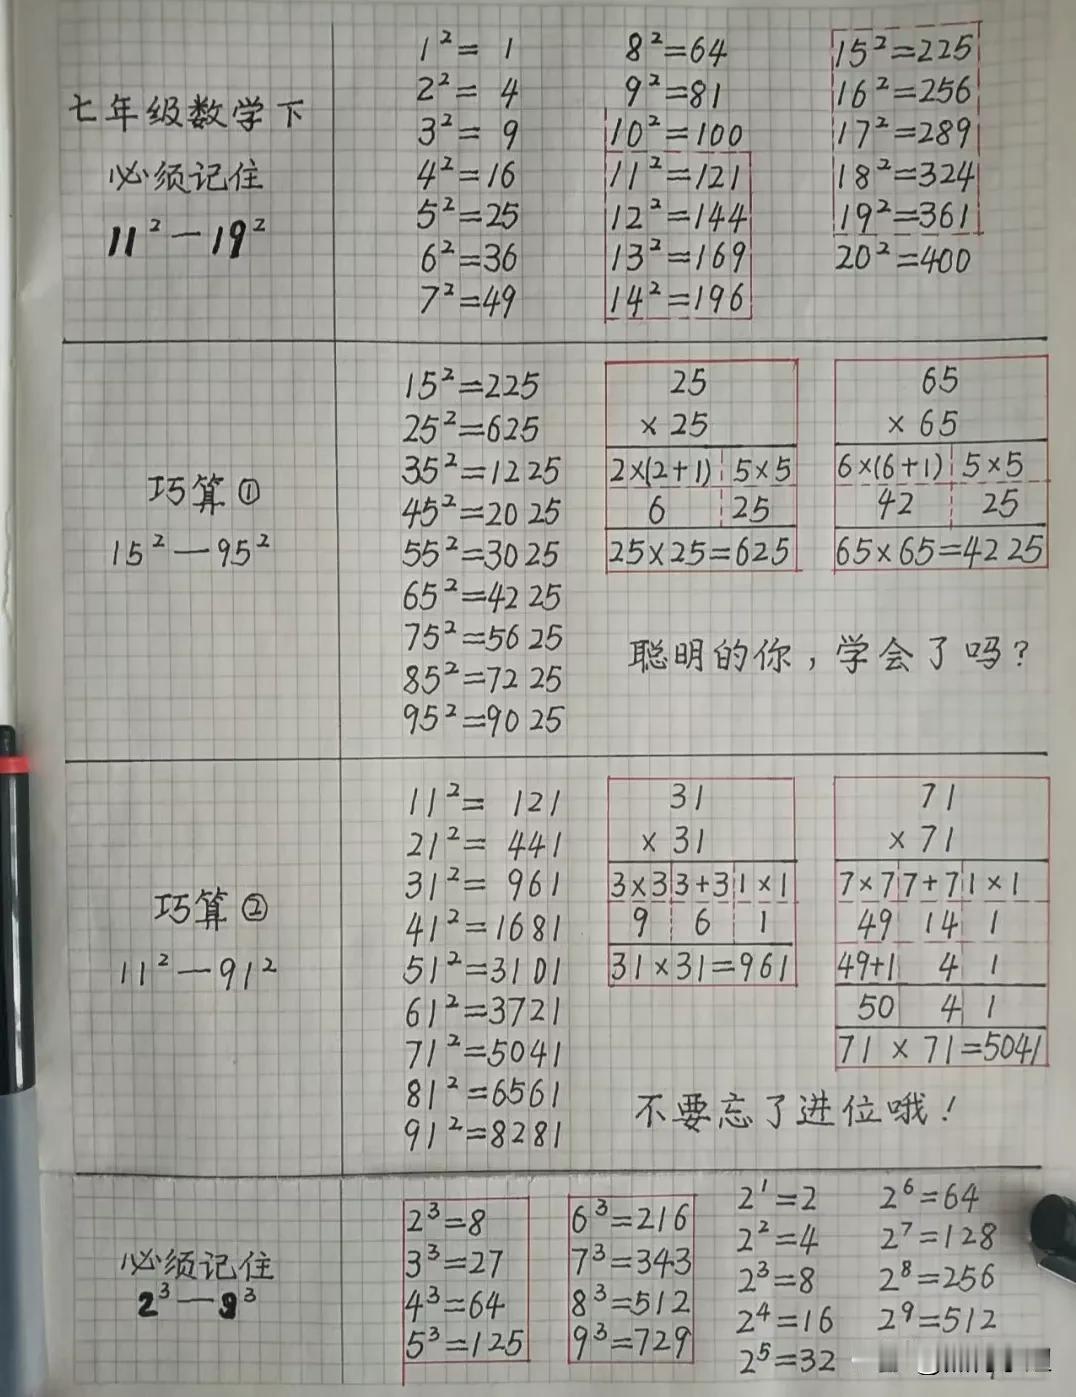 七年级数学下
必须记住
11²—19²
1²= 1
2²= 4
3²= 9
4²=16
5²=25
6²=36
7²=49
8²=64
9²=81
10²=100
11²=121
12²=144
13²=169
14²=196
15²=225
16²=256
17²=289
18²=324
19²=361
20²=400
巧算①
15²—95²
15²=225
25²=625
35²=1225
45²=2025
55²=3025
65²=4225
75²=5625
85²=7225
95²=9025
25
×25
2×(2+1) 5×5
6 25
25×25=625
65
×65
6×(6+1) 5×5
42 25
65×65=4225
聪明的你,学会了吗?
巧算②
11²—91²
11²= 121
21²= 441
31²= 961
41²=1681
51²=3101
61²=3721
71²=5041
81²=6561
91²=8281
31
×31
3×3 3+3 1×1
9 6 1
31×31=961
71
×71
7×7 7+7 1×1
49 14 1
49+1 4 1
50 4 1
71×71=5041
不要忘了进位哦!
必须记住
2³—9³
2³=8
3³=27
4³=64
5³=125
6³=216
7³=343
8³=512
9³=729
2¹=2
2²=4
2³=8
2⁴=16
2⁵=32
2⁶=64
2⁷=128
2⁸=256
2⁹=512